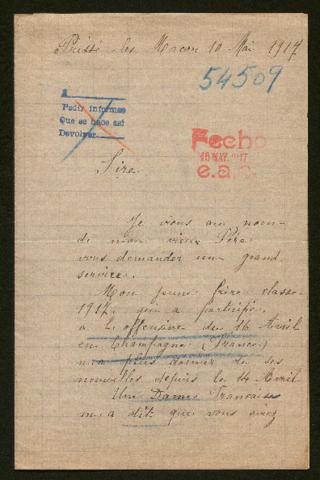 Prissé les Macon 10 Mai 1917
54509
A
Pedir informes
Que se hace así
Devolver
Fecho
16 MAY. 1917
e.a.
Sire
Je vous au nom
de mon vieux Père
vous demander un grand
service.
Mon jeune frère classe
1917, qui a participé,
a l'offensive du 16 Avril
en Champagne (France)
n'a plus donné de ses
nouvelles depuis le 14 Avril
Une Dame Française
m'a dit que vous avez